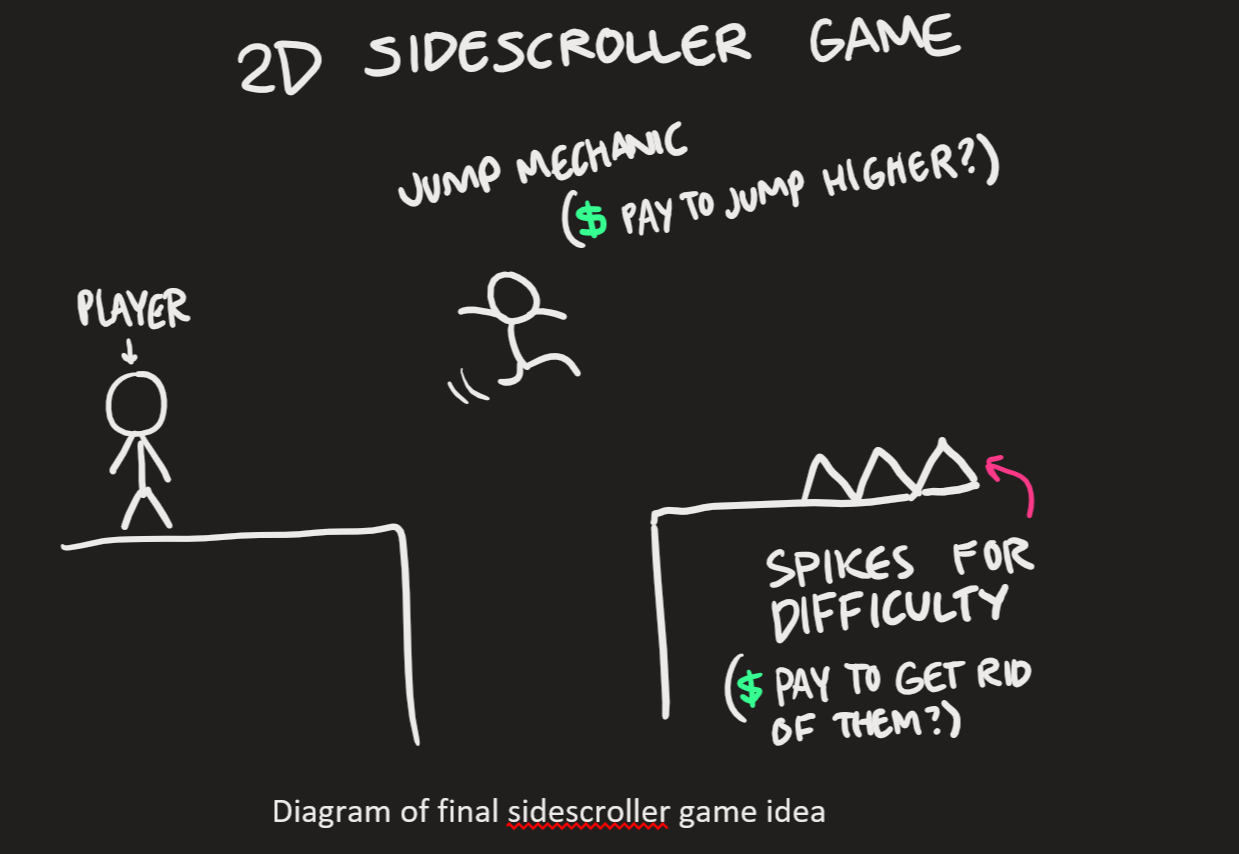 2D SIDESCROLLER GAME
JUMP MECHANIC
($ PAY TO JUMP HIGHER?)
PLAYER
SPIKES FOR
DIFFICULTY
($ PAY TO GET RID
OF THEM?)
Diagram of final sidescroller game idea